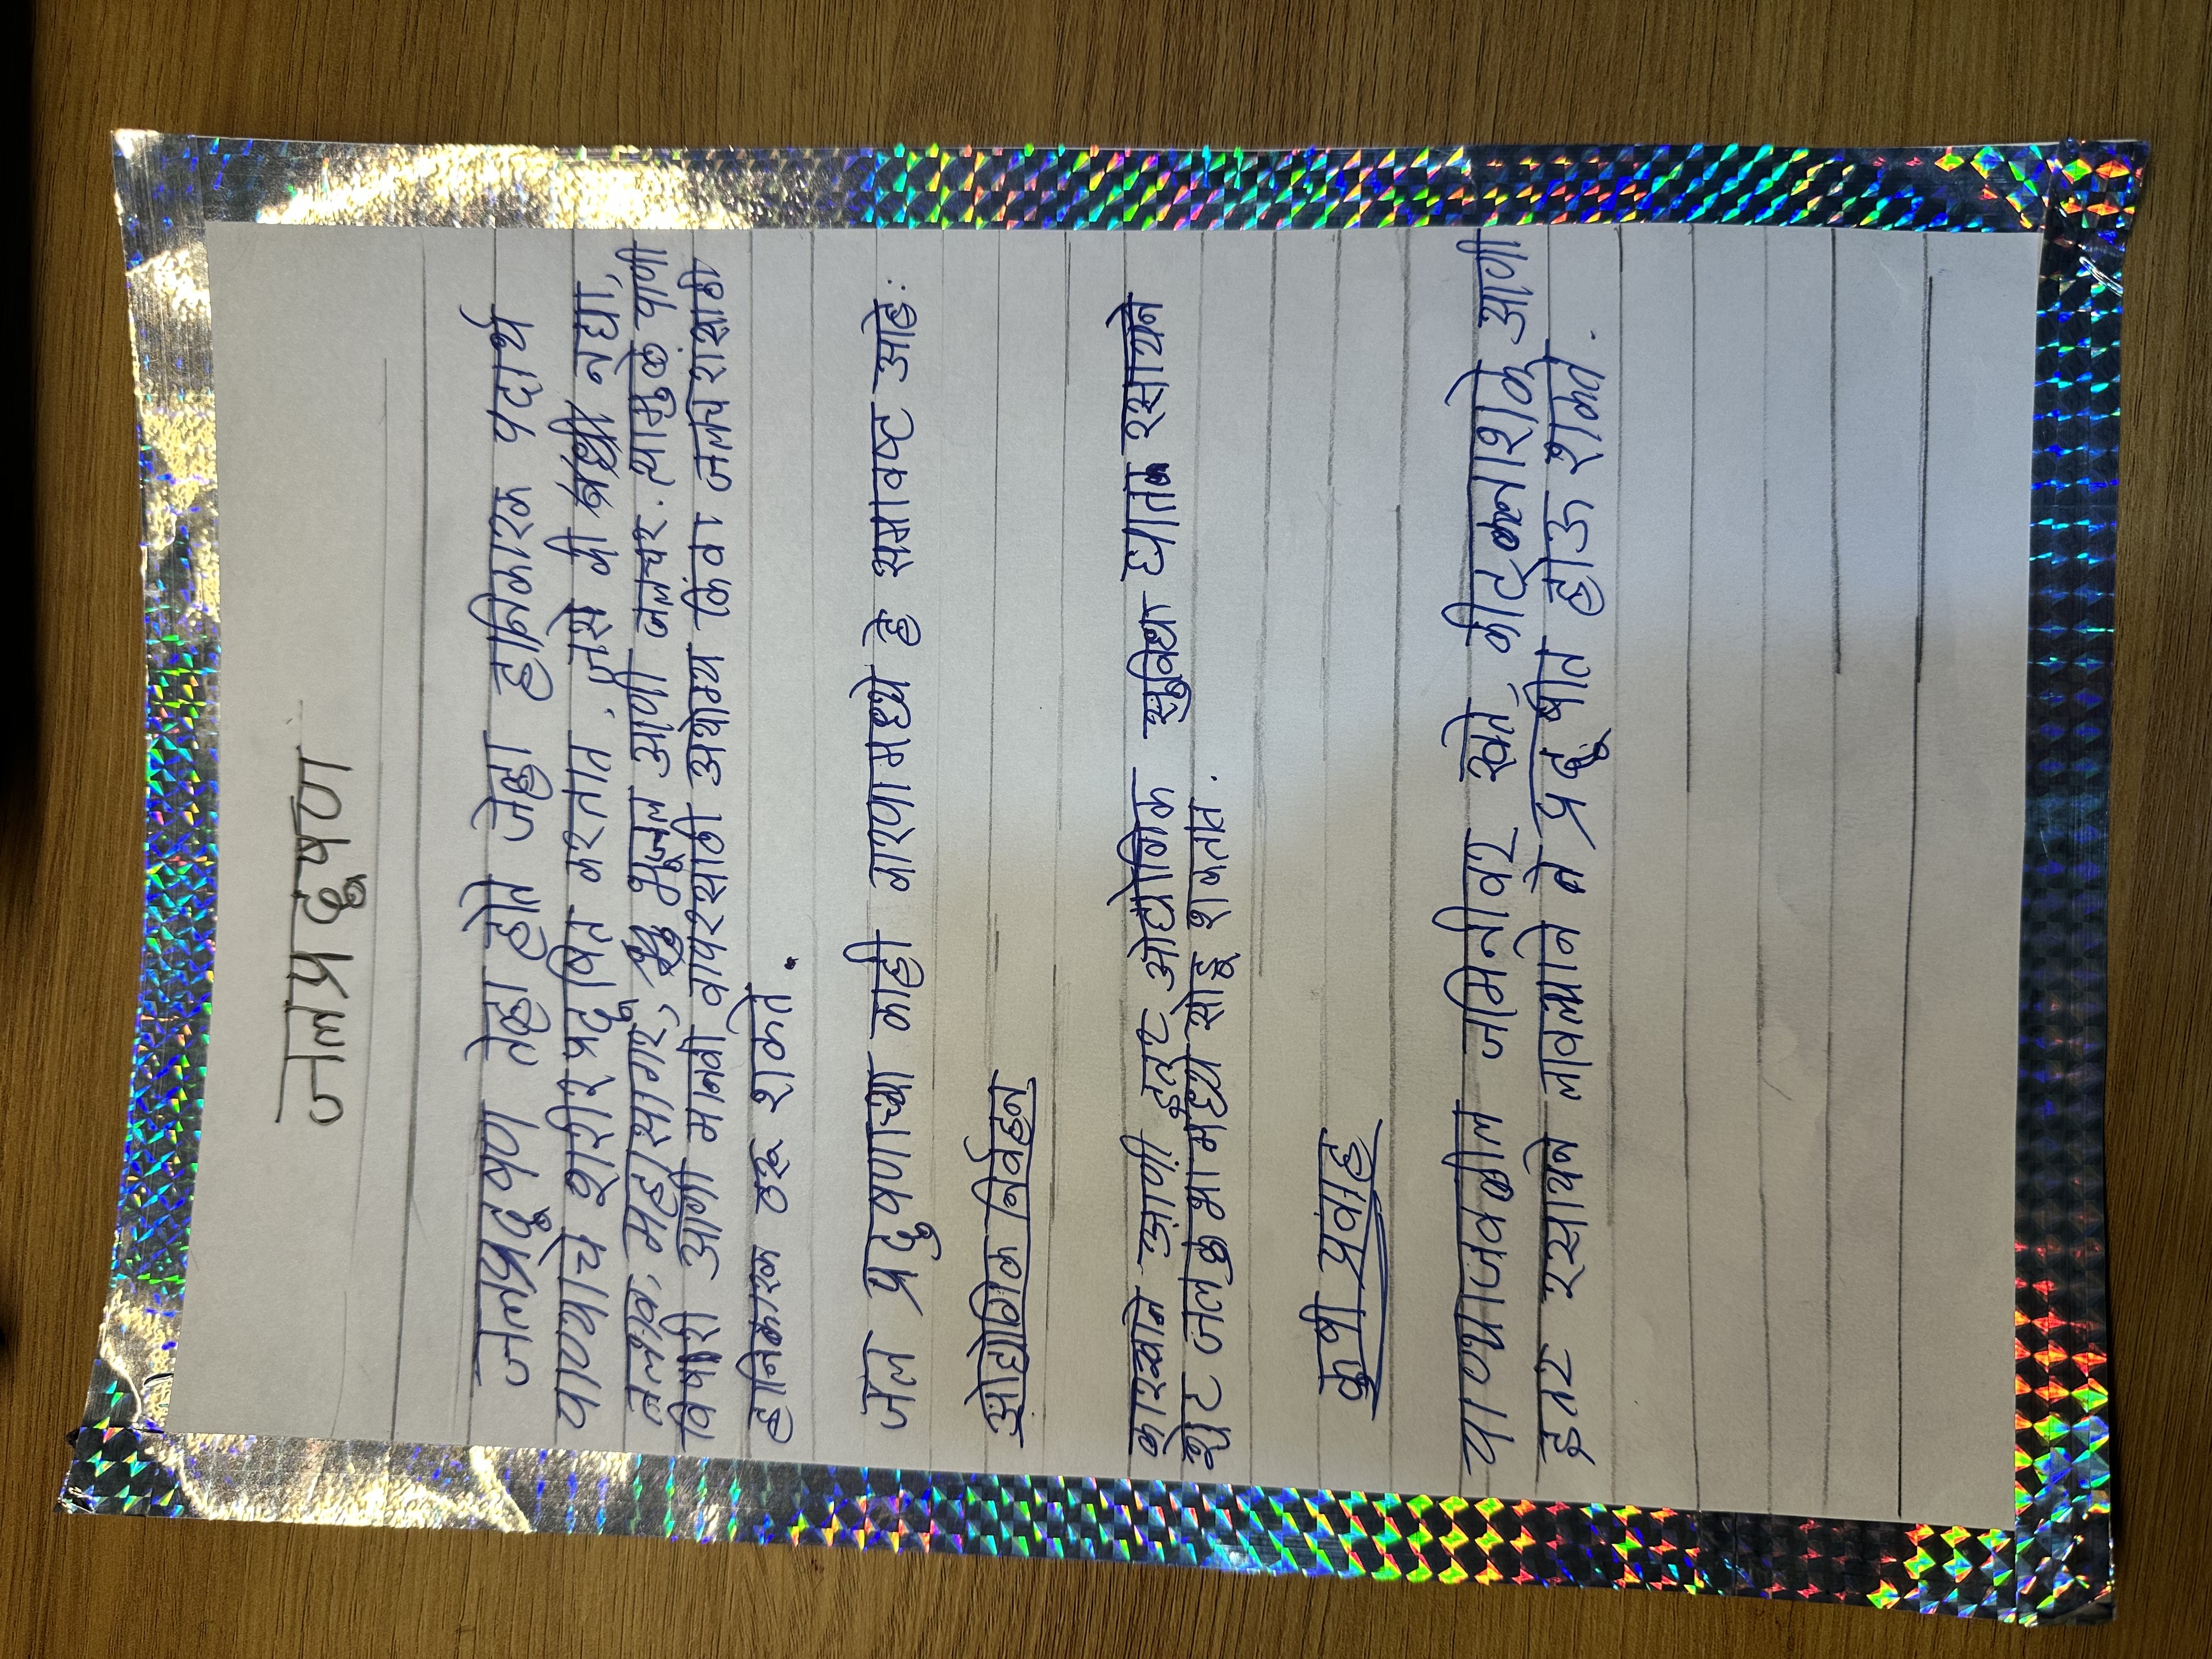 जलप्रदूषण
जलप्रदूषण तेव्हा होते जेव्हा हानिकारक पदार्थ
पाण्याचे शरीर प्रदूषित करतात, जसे की नद्या,
तलाव, महासागर, भूजल आणी जलचर. त्यामुळे पाणी
विषारी आणी मानवी वापरसाठी अयोग्य किंवा जलचरांसाठी
हानिकारक ठरू शकते.
जल प्रदुषणाच्या काही कारणामध्ये हे समावष्ट आहे:
ओद्योगिक निर्वहन
कारखाने आणी इतर ओद्योगिक सुविधा घातक रसायने
थेट जलकुंभांमध्ये सोडू शकतात.
कुषी प्रवाह
पाण्याजवळील जमिनीवर खते, कीटकनाशके आणी
इतर रसायने लावल्याने ते प्रदूषीत होऊ शकते.